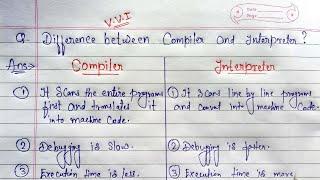 V.V.I
Date
Page
Q. Difference between Compiler and Interpreter ?
Ans:→ Compiler Interpreter
① It Scans the entire programs ① It Scans line by line programs
first and translates it and convert into machine code.
into machine code.
② Debugging is slow. ② Debugging is faster.
③ Execution time is less. ③ Execution time is more